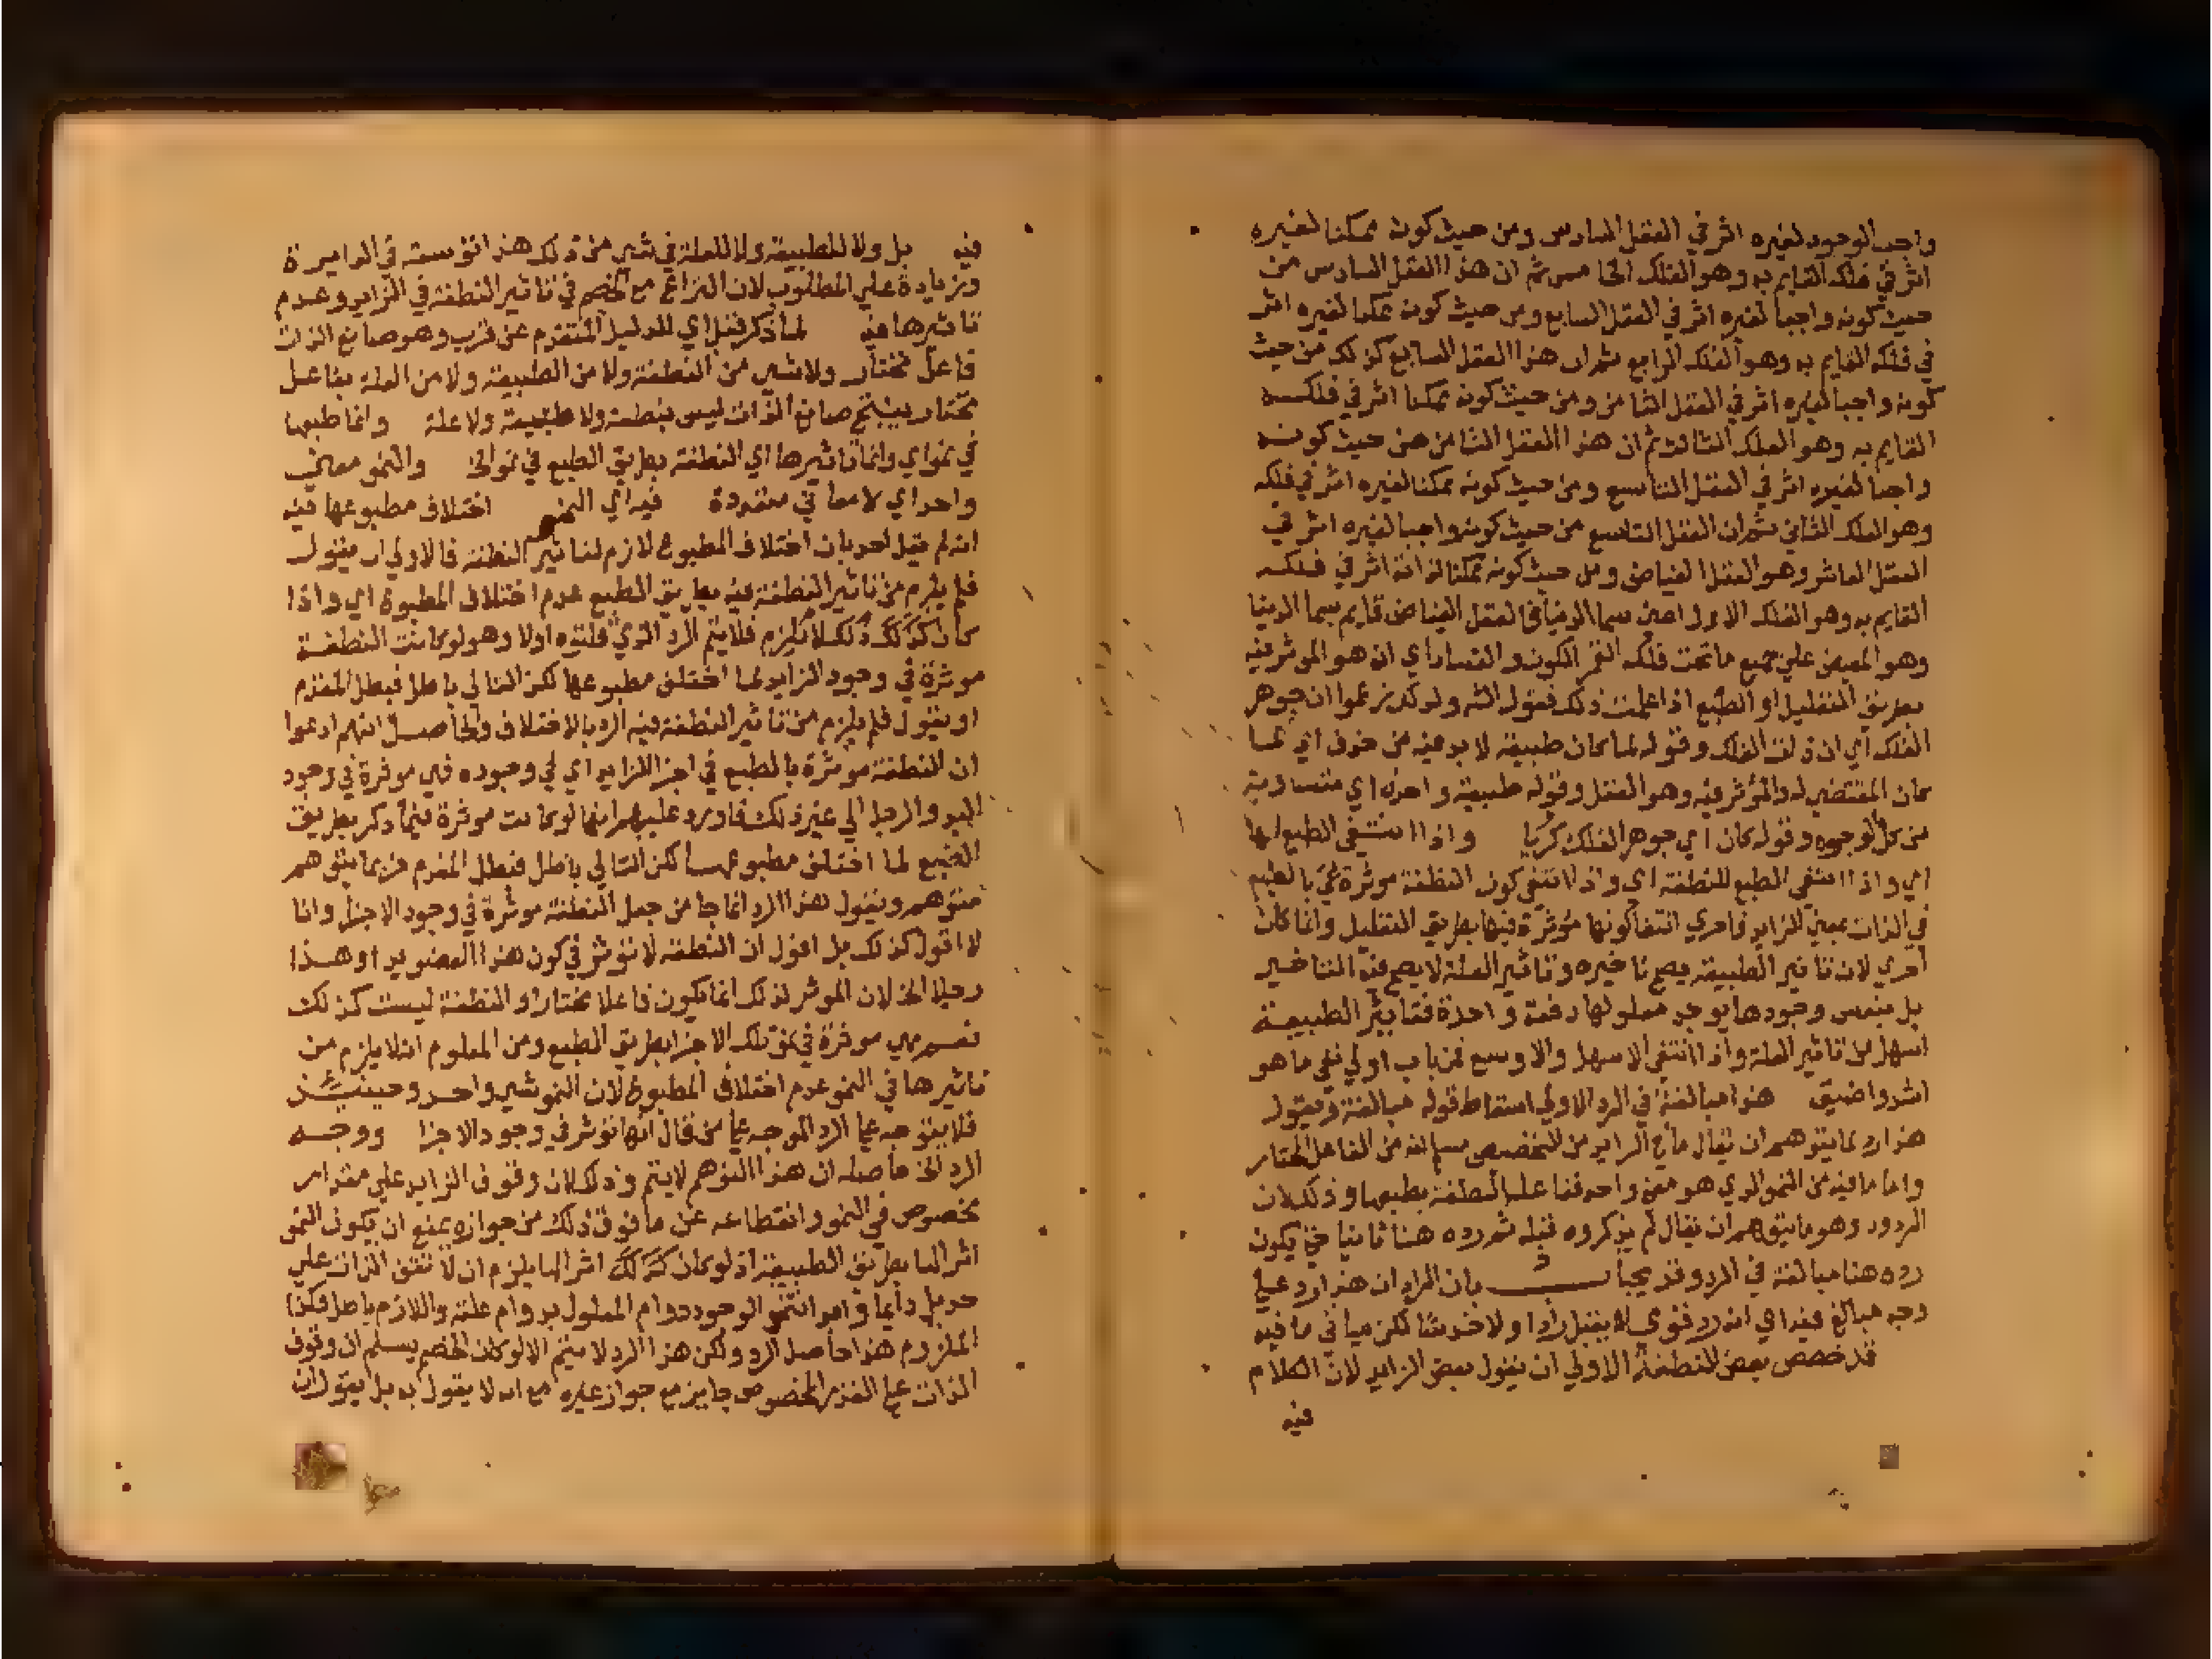 واجب الوجود لغيره اثر في العقل السادس ومن حيث كونه ممكنا لغيره
اثر في فلكه القايم به وهو الفلك الخامس ثم ان هذا العقل السادس من
حيث كونه واجبا لغيره اثر في العقل السابع ومن حيث كونه ممكنا لغيره اثر
في فلكه القايم به وهو الفلك الرابع ثم ان هذا العقل السابع كذلك من حيث
كونه واجبا لغيره اثر في العقل الثامن ومن حيث كونه ممكنا اثر في فلكه
القايم به وهو الفلك الثالث ثم ان هذا العقل الثامن من حيث كونه
واجبا لغيره اثر في العقل التاسع ومن حيث كونه ممكنا لغيره اثر في فلكه
وهو الفلك الثاني ثم ان العقل التاسع من حيث كونه واجبا لغيره اثر في
العقل العاشر وهو العقل الفياض ومن حيث كونه ممكنا لذاته اثر في فلكه
القايم به وهو الفلك الاول اعني سما الدنيا فالعقل الفياض قايم بسما الدنيا
وهو المفيض علي جميع ما تحت فلكه القمر الكون والفساد اي ان هو الموثر فيه
بطريق التعليل او الطبع اذا علمت ذلك فقوله الشه ولذلك زعموا ان جوهر
الفلك اي ان ذات الفلك وقوله لما كان طبيعة لا بد فيه من حذف اي لما
كان المقتضي له والمؤثر فيه وهو العقل وقوله طبيعة واحده اي متساوية
من كل الوجوه وقوله كان اي جوهر الفلك كريا واذا انتفي الطبع لها
اي واذا انتفي الطبع للنطفة اي واذا انتفي كون النطفة موثرة في بالطبع
في الذات بمعني الزايد فاحري انتفا كونها مؤثرة فيها بطريق التعليل وانما كان
احري لان تاثير الطبيعة يصح تاخيره وتاثير العلة لا يصح فيه التاخير
بل بنفس وجودها يوجد معلولها دفعة واحدة فتاثير الطبيعة
اسهل من تاثير العلة واذا انتفي الاسهل والاوسع فمن باب اولي نفي ما هو
اشد واضيق هذا مبالغة في الرد الاولي اسقاط قوله مبالغة ويقول
هذا رد لما يتوهم ان يقال مانع الزايد من التخصيص سلمانه من الفاعل المختار
واما ما فيه من النمو الذي هو معني واحد فنا علم النطفة بطبعها وذلك لان
المردود وهو ما يتوهم ان يقال لم يذكروه قبله ثم رده هنا ثانيا حتي يكون
رده هنا مبالغة في الرد وقد يجاب بان المراد ان هذا رد علي
وجه مبالغ فيه اي انه رد قوي لا يقبل ردا ولا خدشا لكن ميا في ما فيه
قد خصص بعض النطفة الاولي ان يقول بعض الزايد لان الكلام
فيه
فيه بل ولا للطبيعة ولا للعلة في شي من ذلك هذا توسعة في الدايرة
وزيادة علي المطلوب لان النزاع مع الخصم في تاثير النطفة في الزايد وعدم
تاثيرها فيه لما ذكر قبل اي للدليل المتقدم عن قرب وهو صانع الذات
فاعل مختار ولا شي من النطفة ولا من الطبيعة ولا من العلة بفاعل
مختار ينتج صانع الذات ليس بنطفة ولا طبيعة ولا علة وانما طبعها
في نمو اي وانما تاثيرها اي النطفة بطريق الطبع في نمو الخ والنمو معني
واحد اي لا معاني متعددة فيه اي النمو اختلاف مطبوعها فيه
انه لم يقل احد بان اختلاف المطبوع لازم لتاثير النطفة فالاولي ان يقول
فلم يلزم من تاثير النطفة فيه بطريق الطبع عدم اختلاف المطبوع اي واذا
كان كذلك ذلك لا يلزم فلا يتم الرد الذي قلتوه اولا وهو لو كانت النطفة
موثرة في وجود الزايد لما اختلف مطبوعها لكن التالي باطل فبطل المقدم
او يقول فلم يلزم من تاثير النطفة فيه الرد بالاختلاف والحاصل انهم ادعوا
ان النطفة موثرة بالطبع في اجزا الزايد اي في وجوده فهي موثرة في وجود
اليد والرجل الي غير ذلك فاورد عليهم انها لو كانت موثرة فيما ذكر بطريق
الطبع لما اختلف مطبوعها لكن التالي باطل فبطل المقدم فربما يتوهم
متوهم ويقول هذا الرد انما جا من جعل النطفة موثرة في وجود الاجزا وانا
لا اقول كذلك بل اقول ان النطفة لا توثر في كون هذا العضو يدا وهذا
رجلا الخ لان الموثر لذلك انما يكون فاعلا مختارا والنطفة ليست كذلك
نعم هي موثرة في نمو تلك الاجزا بطريق الطبع ومن المعلوم انه لا يلزم من
تاثيرها في النمو عدم اختلاف المطبوع لان النمو شي واحد وحينئذ
فلا يتوجه علي الرد الموجه علي من قال انها توثر في وجود الاجزا ووجه
الرد الخ حاصله ان هذا التوهم لا يتم وذلك لان وقوف الزايد علي مقدار
مخصوص في النمو وانقطاعه عن ما فوق ذلك من جوازه يمنع ان يكون النمو
اثر الها بطريق الطبيعة اذ لو كان كذلك اثر الها يلزم ان لا تقف الذات علي
حد بل دايما وابدا تنمو الوجود دوام المعلول بدوام علته واللازم باطل فكذا
الملزوم هذا حاصل الرد ولكن هذا الرد لا يتم الا لو كان الخصم يسلم ان وقوف
الذات علي القدر المخصوص جايز مع جواز غيره مع انه لا يقول به بل يقول ان